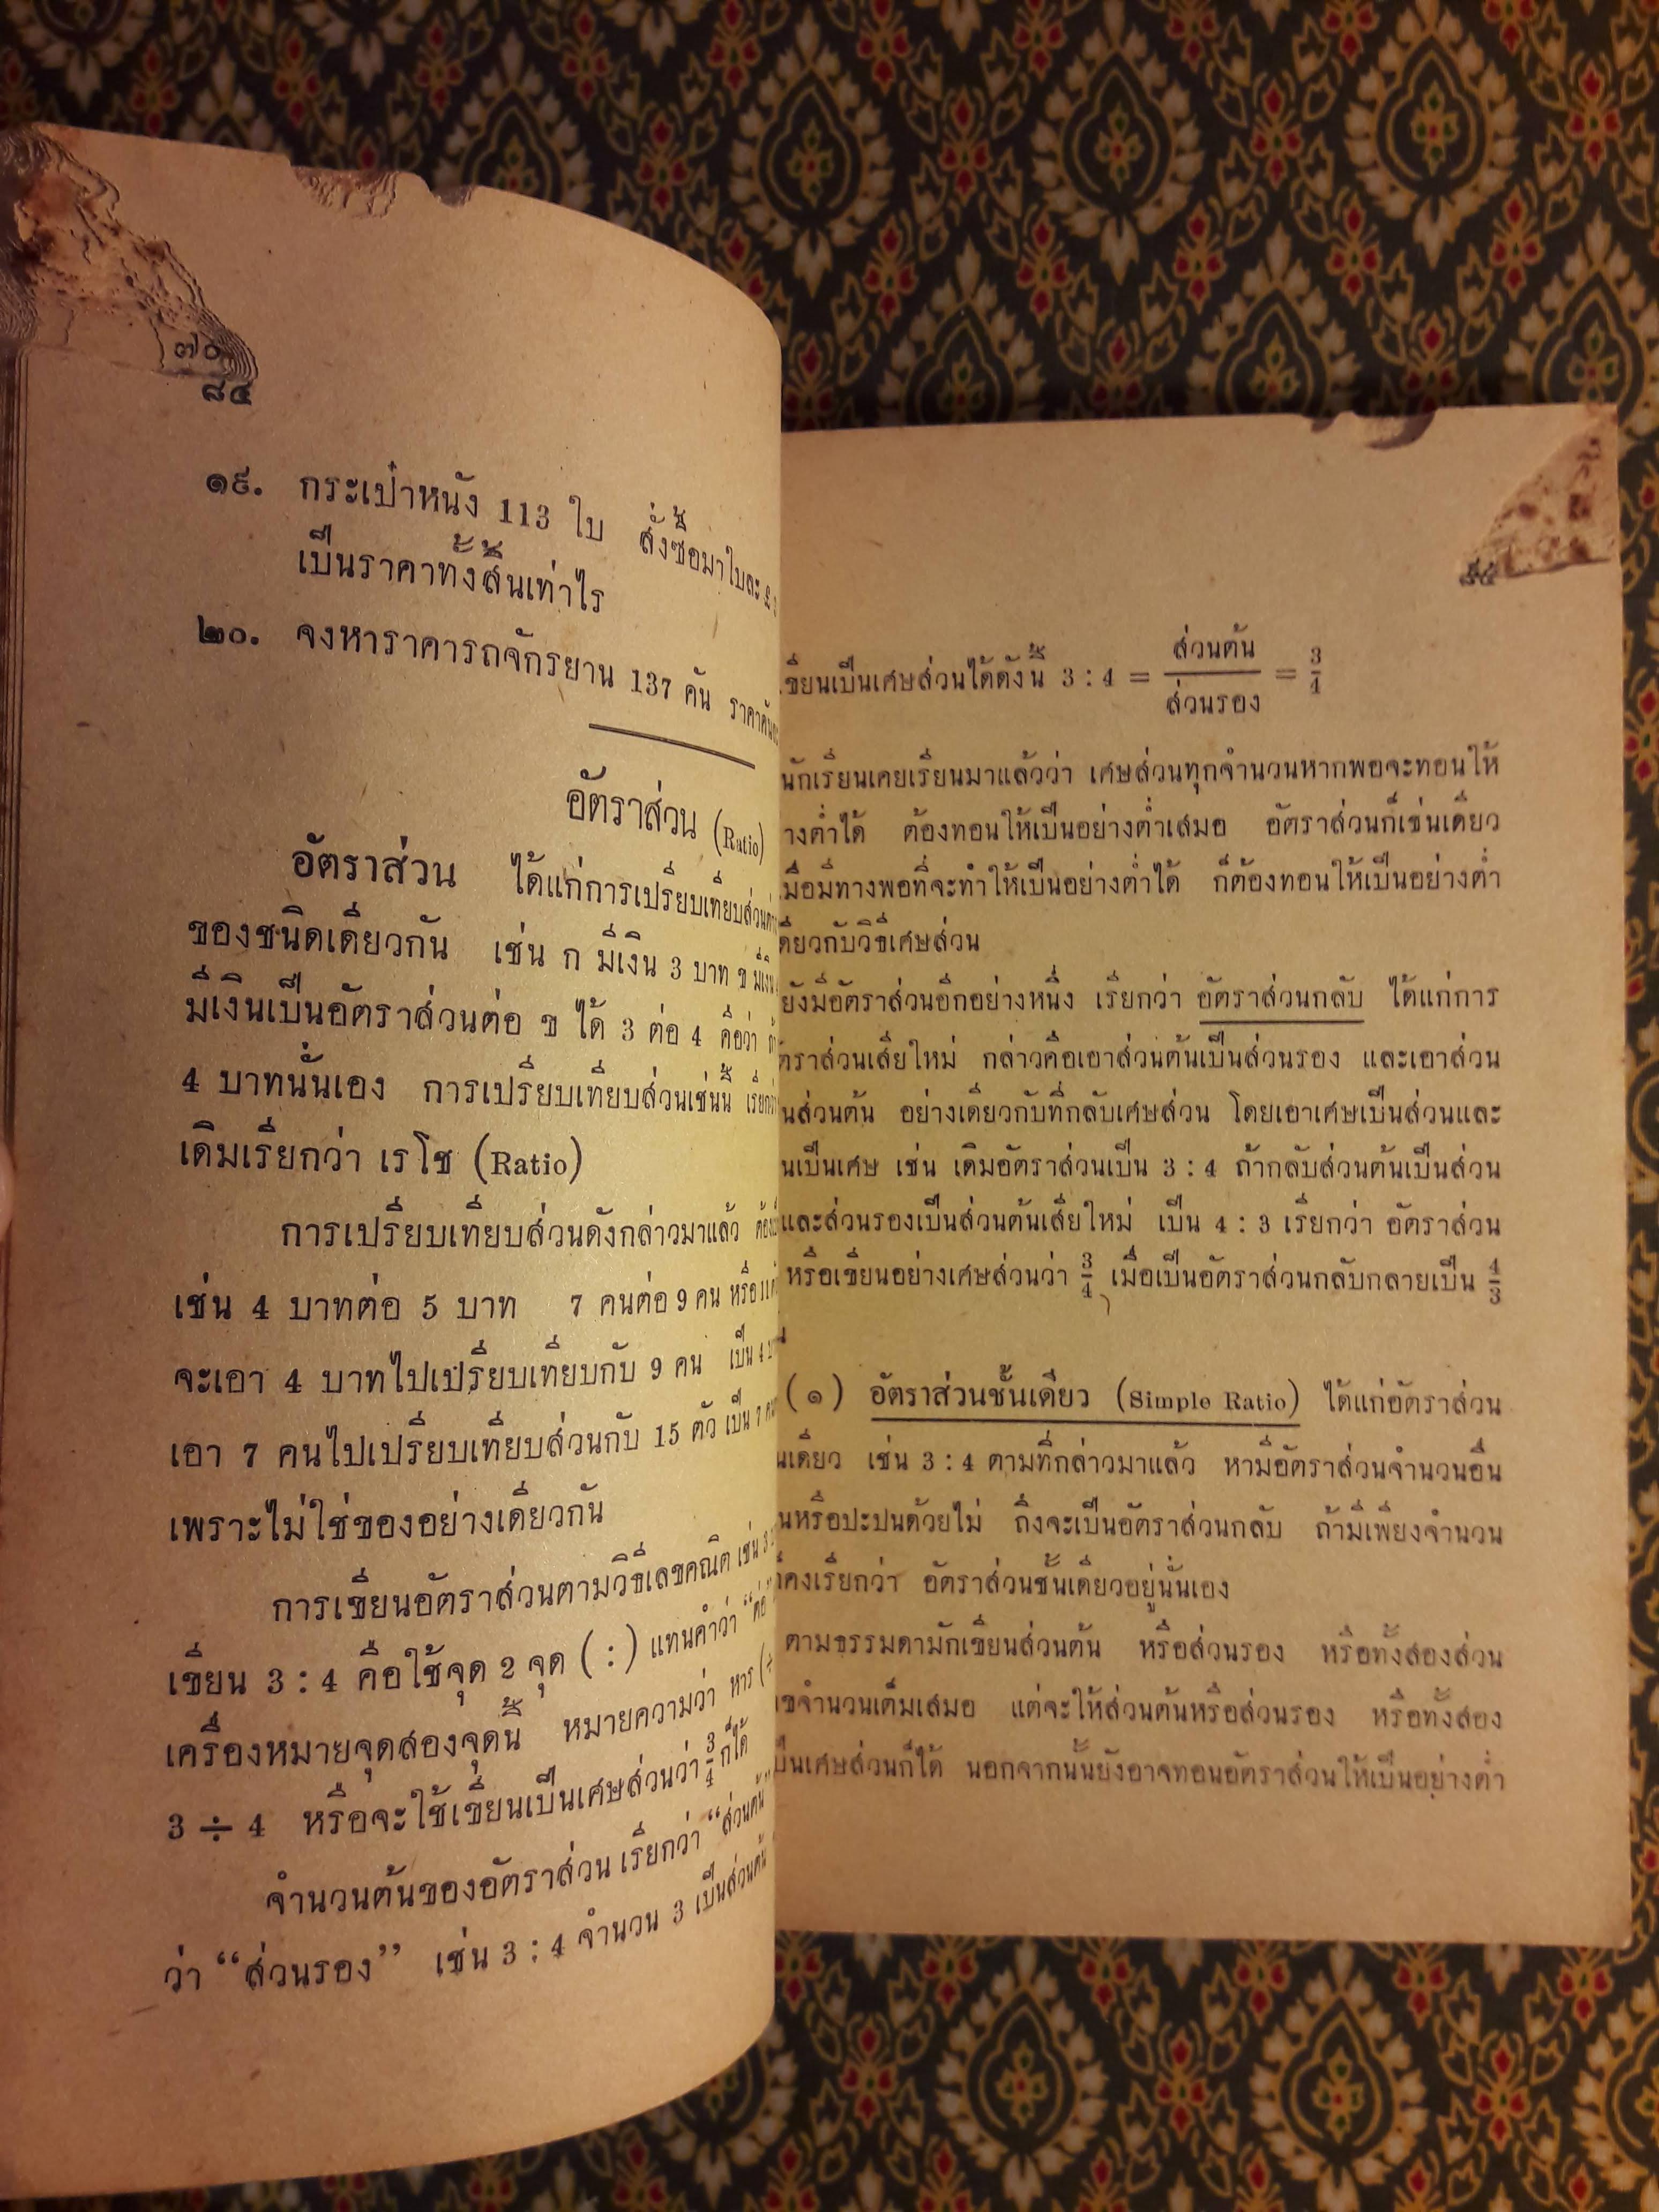 ๗๐
๘๔
๑๙. กระเป๋าหนัง 113 ใบ สั่งซื้อมาใบละ
เป็นราคาทั้งสิ้นเท่าไร
๒๐. จงหาราคารถจักรยาน 137 คัน ราคาคัน
อัตราส่วน (Ratio)
อัตราส่วน ได้แก่การเปรียบเทียบส่วน
ของชนิดเดียวกัน เช่น ก มีเงิน 3 บาท ข มีเงิน
มีเงินเป็นอัตราส่วนต่อ ข ได้ 3 ต่อ 4 คือว่า
4 บาทนั่นเอง การเปรียบเทียบส่วนเช่นนี้ เรียก
เดิมเรียกว่า เรโช (Ratio)
การเปรียบเทียบส่วนดังกล่าวมาแล้ว
เช่น 4 บาทต่อ 5 บาท 7 คนต่อ 9 คน หรือ
จะเอา 4 บาทไปเปรียบเทียบกับ 9 คน เป็น 4
เอา 7 คนไปเปรียบเทียบส่วนกับ 15 ตัว เป็น 7
เพราะไม่ใช่ของอย่างเดียวกัน
การเขียนอัตราส่วนตามวิธีเลขคณิต เช่น 3
เขียน 3 : 4 คือใช้จุด 2 จุด ( : ) แทนคำว่า “ต่อ
เครื่องหมายจุดสองจุดนี้ หมายความว่า หาร (
3 ÷ 4 หรือจะใช้เขียนเป็นเศษส่วนว่า 3/4 ก็ได้
จำนวนต้นของอัตราส่วน เรียกว่า “ส่วนต้น
ว่า “ส่วนรอง” เช่น 3 : 4 จำนวน 3 เป็นส่วนต้น
๘๕
เขียนเป็นเศษส่วนได้ดังนี้ 3 : 4 = ส่วนต้น/ส่วนรอง = 3/4
นักเรียนเคยเรียนมาแล้วว่า เศษส่วนทุกจำนวนหากพอจะทอนให้
างต่ำได้ ต้องทอนให้เป็นอย่างต่ำเสมอ อัตราส่วนก็เช่นเดียว
มื่อมีทางพอที่จะทำให้เป็นอย่างต่ำได้ ก็ต้องทอนให้เป็นอย่างต่ำ
ดียวกับวิธีเศษส่วน
ยังมีอัตราส่วนอีกอย่างหนึ่ง เรียกว่า อัตราส่วนกลับ ได้แก่การ
ตราส่วนเสียใหม่ กล่าวคือเอาส่วนต้นเป็นส่วนรอง และเอาส่วน
นส่วนต้น อย่างเดียวกับที่กลับเศษส่วน โดยเอาเศษเป็นส่วนและ
นเป็นเศษ เช่น เดิมอัตราส่วนเป็น 3 : 4 ถ้ากลับส่วนต้นเป็นส่วน
และส่วนรองเป็นส่วนต้นเสียใหม่ เป็น 4 : 3 เรียกว่า อัตราส่วน
หรือเขียนอย่างเศษส่วนว่า 3/4 เมื่อเป็นอัตราส่วนกลับกลายเป็น 4/3
(๑) อัตราส่วนชั้นเดียว (Simple Ratio) ได้แก่อัตราส่วน
นเดียว เช่น 3 : 4 ตามที่กล่าวมาแล้ว หามีอัตราส่วนจำนวนอื่น
นหรือปะปนด้วยไม่ ถึงจะเป็นอัตราส่วนกลับ ถ้ามีเพียงจำนวน
ก็คงเรียกว่า อัตราส่วนชั้นเดียวอยู่นั่นเอง
ตามธรรมดามักเขียนส่วนต้น หรือส่วนรอง หรือทั้งสองส่วน
ขจำนวนเต็มเสมอ แต่จะให้ส่วนต้นหรือส่วนรอง หรือทั้งสอง
ป็นเศษส่วนก็ได้ นอกจากนั้นยังอาจทอนอัตราส่วนให้เป็นอย่างต่ำ